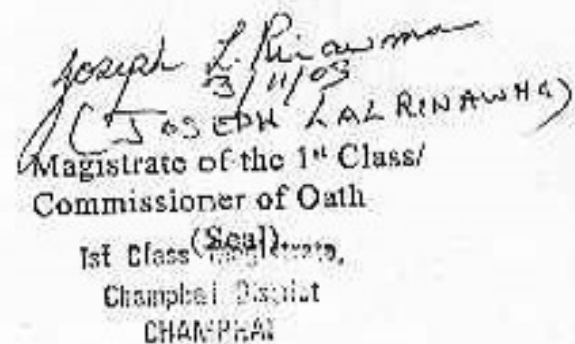 Joseph L. Rinawma
3/11/03
(JOSEPH LALRINAWMA)
Magistrate of the 1st Class/
Commissioner of Oath
(Seal)
1st Class Magistrate,
Champhai District
CHAMPHAI